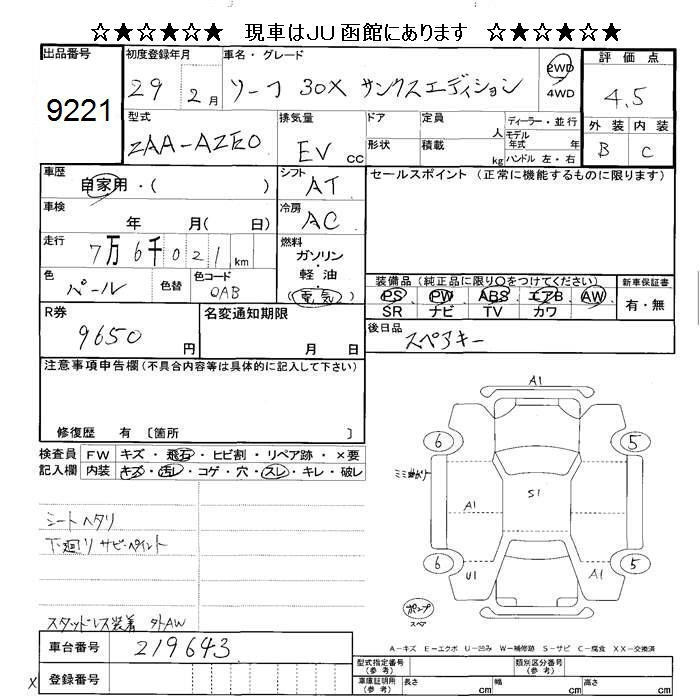 ☆★☆★☆★ 現車はJU函館にあります ☆★☆★☆★
出品番号 初度登録年月 車名・グレード 評価点
9221 29 2月 リーフ 30X サンクスエディション 2WD 4WD 4.5
型式 排気量 ドア 定員 人 ディーラー・並行 外装 内装
ZAA-AZE0 EV cc 形状 積載 kg モデル年式 年 ハンドル 左・右 B C
車歴 シフト セールスポイント(正常に機能するものに限ります)
自家用・( ) AT
車検 年 月( 日) 冷房 AC
走行 7万6千021km 燃料
ガソリン・軽油・(電気)
色 色替 色コード 装備品(純正品に限り○をつけてください) 新車保証書
パール QAB PS PW ABS エアB AW 有・無
SR ナビ TV カワ
R券 名変通知期限 後日品
9650円 月 日 スペアキー
注意事項申告欄(不具合内容等は具体的に記入して下さい)
修復歴 有〔箇所 〕
検査員 FW キズ・飛石・ヒビ割・リペア跡・×要
記入欄 内装 キズ・汚レ・コゲ・穴・スレ・キレ・破レ
シートヘタリ
下廻リ サビ・ペイント
スタッドレス装着 外AW
A1
6 5
A1 S1
6 5
U1 A1
ポンプ
スペア
A-キズ E-エクボ U-凹み W-補修跡 S-サビ C-腐食 XX-交換済
車台番号 219643
登録番号
X
型式指定番号(参考) 類別区分番号(参考)
車庫証明用(参考) 長さ cm 幅 cm 高さ cm